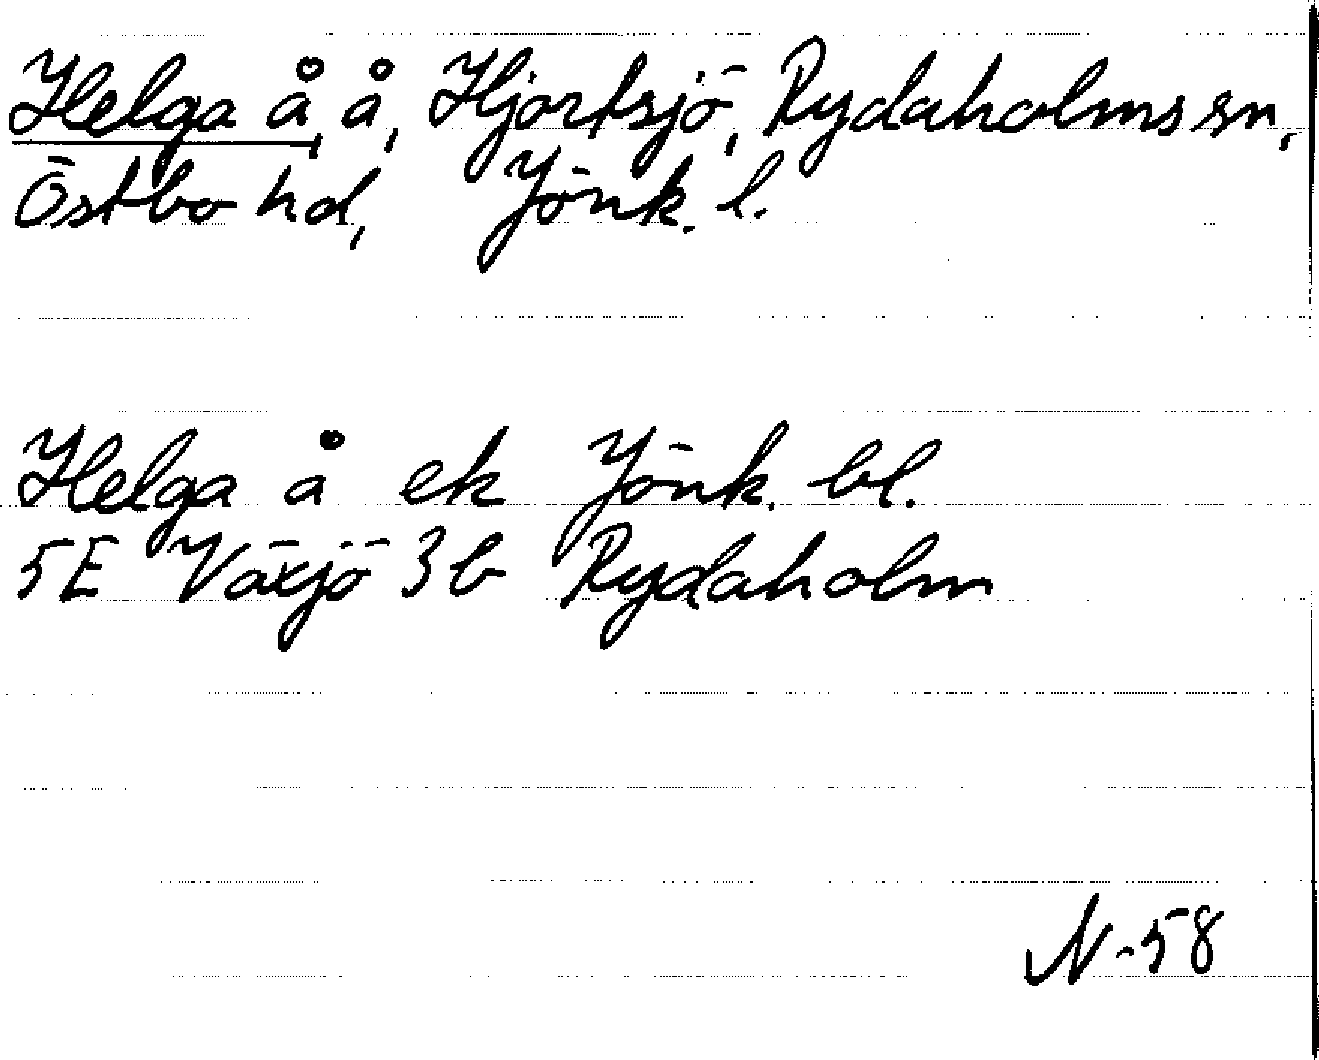 Helga å, å, Hjortsjö, Rydaholms sn,
Östbo hd, Jönk. l.
Helga å ek Jönk. bl.
5E Växjö 3b Rydaholm
N-58